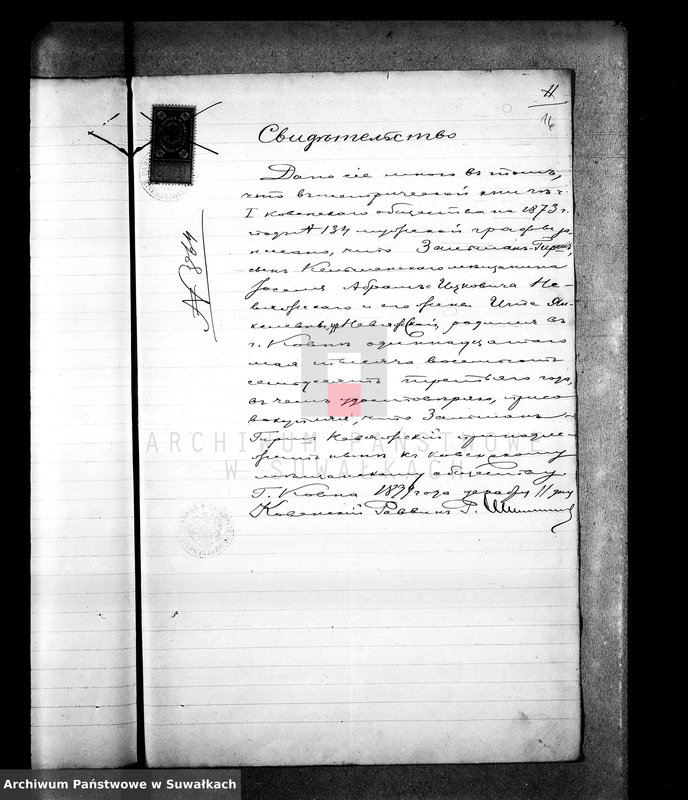 11
16
Свидѣтельство
Дано сіе мною въ томъ,
что въ метрической книгѣ г.
I Ковенскаго общества на 1873 г.
подъ № 134 мужской графы за
писано, что Залманъ-Гиршъ,
сынъ мѣщанина
Абрамъ-Ицковича Не-
вяжскаго и его жены Ян-
келевны Невяжской, родился въ
г. Ковнѣ одиннадцатаго
мая тысяча восемьсотъ
семьдесятъ третьяго года,
въ чемъ удостовѣряю, присо
вокупляя, что Залманъ-
Гиршъ Невяжскій принадле
житъ нынѣ къ ковенскому
мѣщанскому обществу.
Г. Ковна 189 года декабря 11 дня
Ковенскій Раввинъ
№ 864
ARCHIWUM PAŃSTWOWE
W SUWAŁKACH
Archiwum Państwowe w Suwałkach